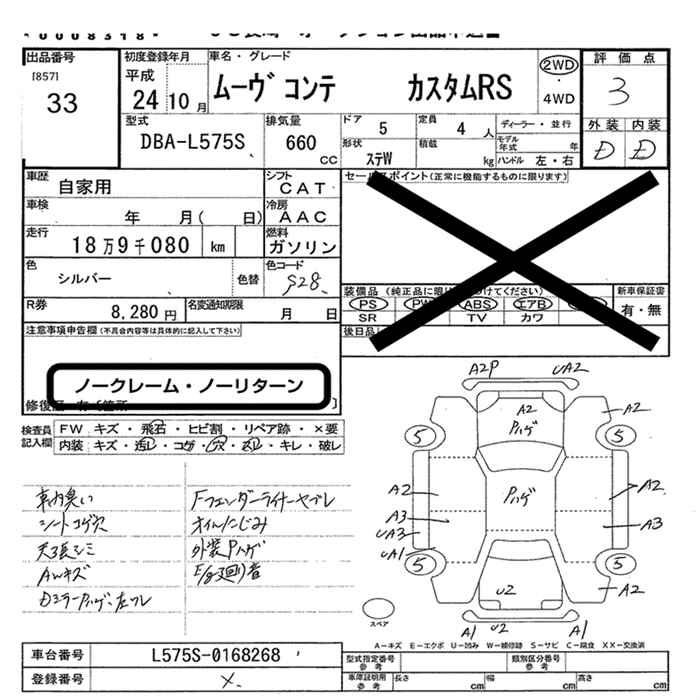 *0008318*
出品番号 初度登録年月 車名・グレード 2WD 評価点
[857] 平成
33 24年10月 ムーヴ コンテ カスタムRS 4WD 3
型式 排気量 ドア 5 定員 4人 ディーラー・並行 外装 内装
DBA-L575S 660cc 形状 ステW 積載 kg モデル年式 年 ハンドル 左・右 D D
車歴 自家用 シフト CAT セールスポイント(正常に機能するものに限ります)
車検 年 月( 日) 冷房 AAC
走行 18万9千080 km 燃料 ガソリン
色 シルバー 色替 色コード S28
装備品 (純正品に限り けてください) 新車保証書
PS PW ABS エアB 有・無
R券 8,280円 名変通知期限 月 日 SR TV カワ
注意事項申告欄(不具合内容等は具体的に記入して下さい) 後日品
ノークレーム・ノーリターン
修復歴 有〔箇所 〕
検査員記入欄 FW キズ・飛石・ヒビ割・リペア跡・×要
内装 キズ・汚レ・コゲ・穴・スレ・キレ・破レ
車内臭い Fフェンダーライナーヤブレ
シートコゲ穴 オイルにじみ
天張シミ 外装Pハゲ
AWキズ E/g廻り音
DミラーPハゲ、左スレ
A2P UA2
A2 A2
Pハゲ
5 5
A2 Pハゲ A2
A3 A3
UA3
UA1
5 5
U2 A2
A1 U2 A1
スペア
A-キズ E-エクボ U-凹み W-補修跡 S-サビ C-腐食 XX-交換済
車台番号 L575S-0168268 型式指定番号 参考 類別区分番号 参考
登録番号 × 車庫証明用 参考 長さ cm 幅 cm 高さ cm